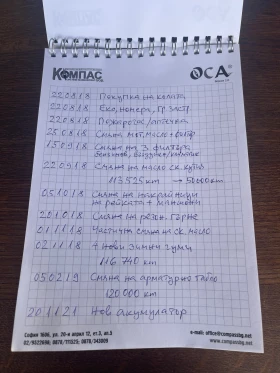 КОМПАС
ОСА®
22.08.18 Покупка на колата
22.08.18 Еко, номера, Гр. застр.
22.08.18 Пожарогас./аптечка
25.08.18 Смяна мот. масло + филтр
15.09.18 Смяна на 3 филтъра
бензинов, въздушен/климатик
22.09.18 Смяна на масло ск. кутия
113 525 km → 50000 km
05.10.18 Смяна на накрайници
на рейката + маншони
20.10.18 Смяна на резон. гърне
01.11.18 Частична смяна ск. масло
02.11.18 + Нови зимни гуми
116 740 km
05.02.19 Смяна на арматурно табло
120 000 km
20.11.21 Нов акумулатор
София 1606, ул. 20-и април 12, ет.3, ап.5
e-mail: office@compassbg.net
www.compassbg.net